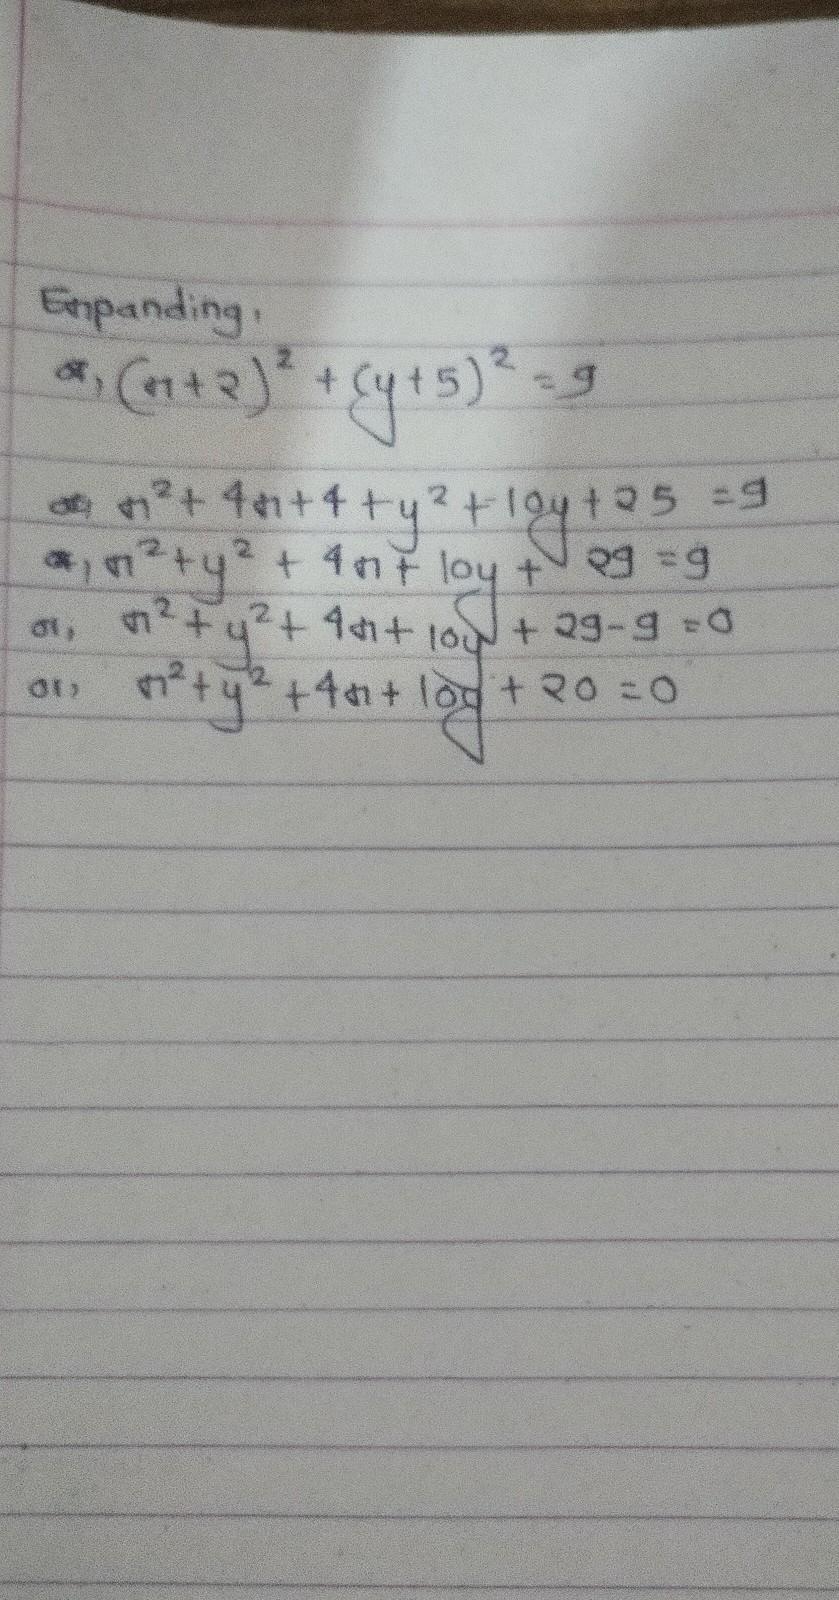 Expanding,
or, (x+2)² + (y+5)² = 9
or, x² + 4x + 4 + y² + 10y + 25 = 9
or, x² + y² + 4x + 10y + 29 = 9
or, x² + y² + 4x + 10y + 29 - 9 = 0
or, x² + y² + 4x + 10y + 20 = 0